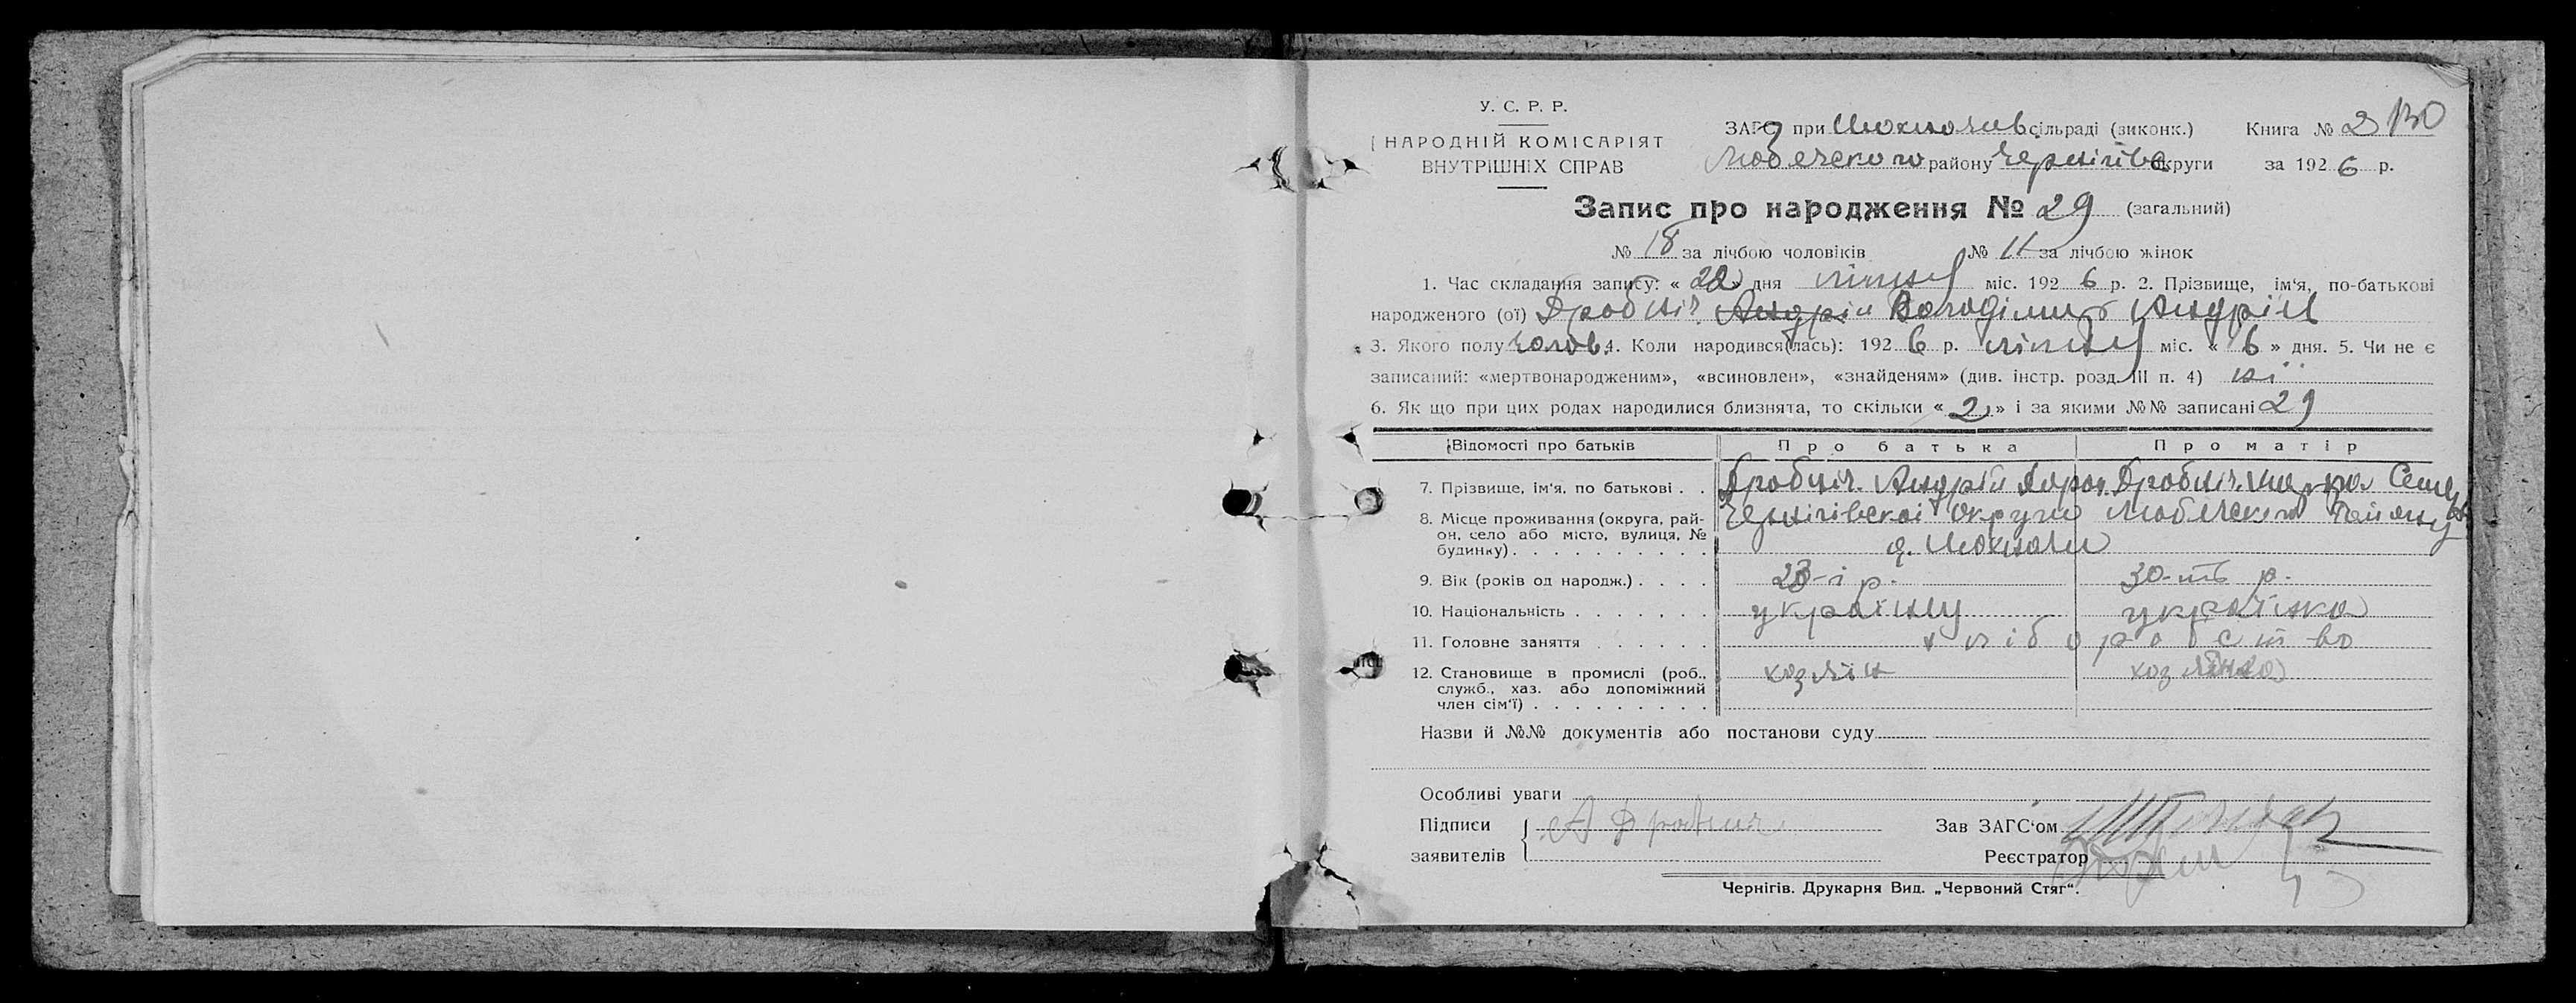 У. С. Р. Р.
НАРОДНІЙ КОМІСАРІЯТ
ВНУТРІШНІХ СПРАВ
ЗАГС при сільраді (виконк.) Книга № 2 130
Любечского району Чернігівс округи за 1926 р.
Запис про народження № 29 (загальний)
№ 18 за лічбою чоловіків № 11 за лічбою жінок
1. Час складання запису: « 22 » дня липня міс. 1926 р. 2. Прізвище, ім'я, по-батькові
народженого (ої) Дробніч Андрій Володімир Андріїв
3. Якого полу чолов. 4. Коли народився(лась): 1926 р. липня міс. « 6 » дня. 5. Чи не є
записаний: «мертвонародженим», «всиновлен», «знайденям» (див. інстр. розд. III п. 4) ні
6. Як що при цих родах народилися близнята, то скільки « 2 » і за якими №№ записані 29
Відомості про батьків Про батька Про матір
7. Прізвище, ім'я, по батькові . . Дробніч Андрій Дробніч
8. Місце проживання (округа, рай- Чернігівскоі Округи Любечского Району
он, село або місто, вулиця, №
будинку) . . . . . . . . . .
9. Вік (років од народж.) . . . . 23-і р. 30-ть р.
10. Національність . . . . . . . українц українка
11. Головне заняття . . . . . . хліборобство
12. Становище в промислі (роб., хозяін хозяінка
служб., хаз. або допоміжний
член сім'ї) . . . . . . . . .
Назви й №№ документів або постанови суду
Особливі уваги
Підписи А Дробнич Зав ЗАГС'ом
заявителів Реєстратор
Чернігів. Друкарня Вид. „Червоний Стяг".